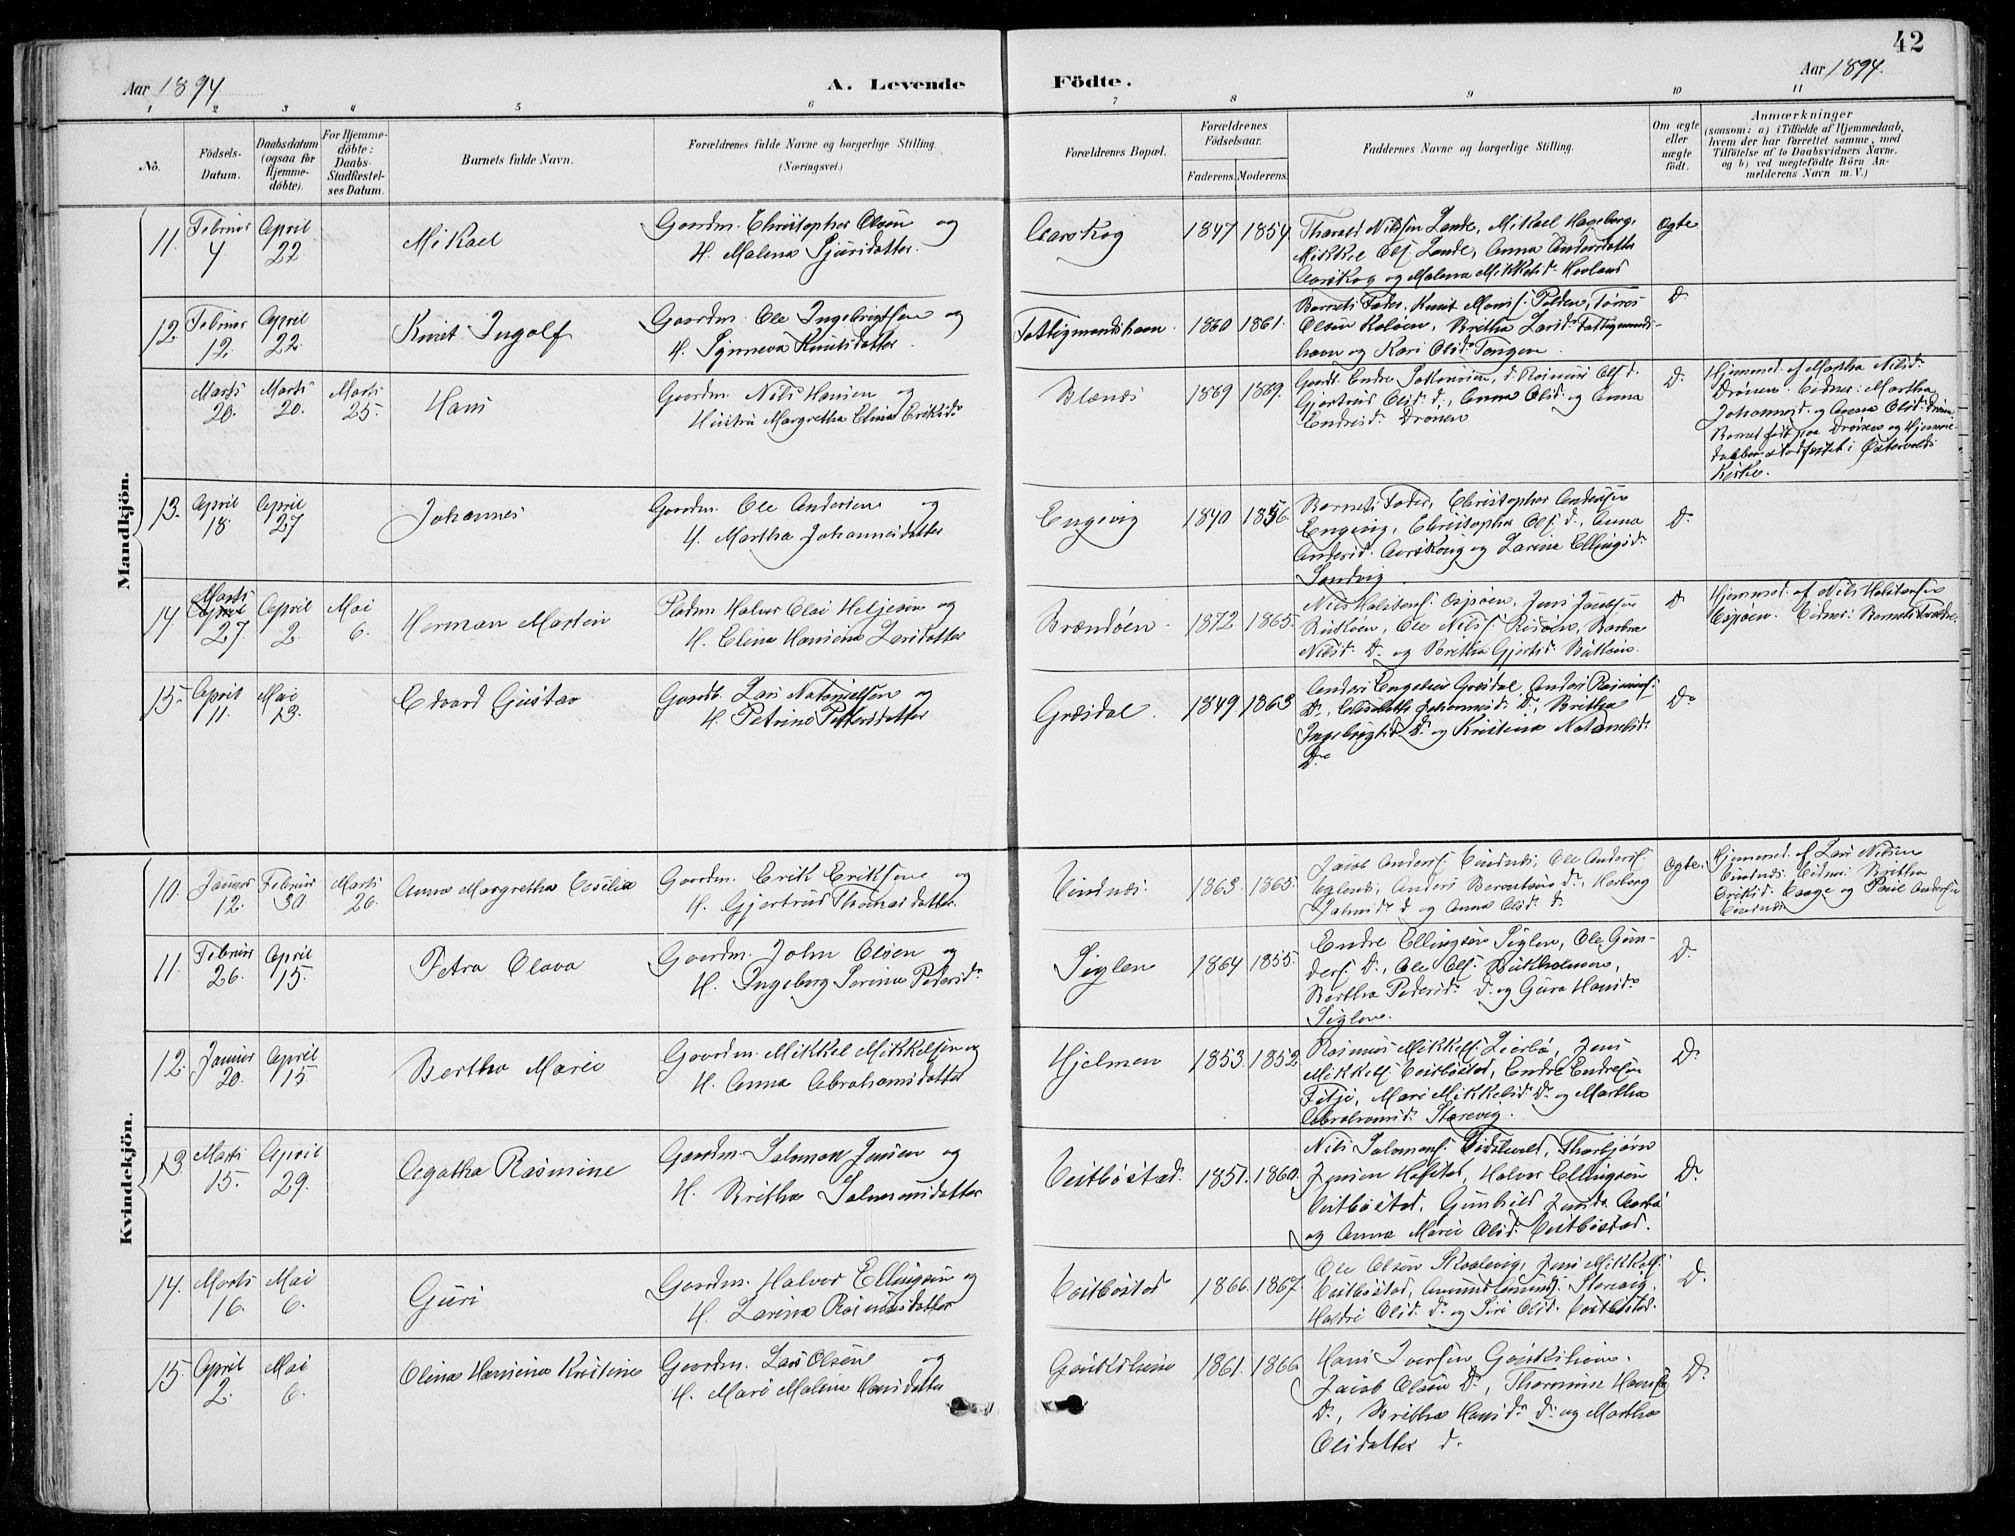 42
Aar 1894
A. Levende
Födte.
Aar 1894.
1 2 3 4 5 6 7 8 9 10 11
No.
Födsels-
Datum.
Daabsdatum
(ogsaa för
Hjemme-
döbte).
For Hjemme-
döbte:
Daabs-
Stadfestel-
ses Datum.
Barnets fulde Navn.
Forældrenes fulde Navne og borgerlige Stilling.
(Næringsvei.)
Forældrenes Bopæl.
Forældrenes
Födselsaar.
Faderens. Moderens.
Faddernes Navne og borgerlige Stilling.
Om ægte
eller
uægte
födt.
Anmærkninger
(saasom: a) i Tilfælde af Hjemmedaab,
hvem der har forrettet samme, med
Tilföielse af to Daabsvidners Navne.
og b) ved uegtefödte Börn An-
melderens Navn m. V.)
Mandkjön.
11. Februar 4 April 22 Mikael
Gaardm. Christopher Olsen og
H. Malena Sjursdatter
Aarskog 1847 1854
Lande, Mikael Hageberg,
Mikkel Ols. Lande, Anna Andersdatter
Aarskog og Malena Mikkelsd. Havland
Ægte
12. Februar 12. April 22. Knut Ingolf
Gaardm. Ole Ingebrigtsen og
H. Synneva Knutsdatter.
Fattigmandshavn. 1860 1861.
Barnets Fader, Knut Mons. Polden, Törres
Olsen Kalven, Britha Larsd. Fattigmands-
havn og Kari Olsd. Tangen.
D.
Marts 20. Marts 20. Marts 25. Hans
Gaardm. Nils Hansen og
Hustru Margretha Elina Eriksd.
Blænes 1869 1869.
Gjertrud Olsd. d., Anna Olsd. og Anna
Endresd. Drönen
D.
Hjemmed. af Martha Nilsd.
Drönen. Vidner: Martha
Johannesd. og Anna Olsd. Drönen.
Barnet födt paa Drönen og Hjemme-
daaben stadfæstet i Østervolds
Kirke.
13. April 18. April 27 Johannes
Gaardm. Ole Andersen og
H. Martha Johannesdatter
Engevig 1840 1856.
Barnets Fader, Christopher Andersen
Engevig, Christopher Ols. d., Anna
Andersd. Aarskoug og Larina Ellingsd.
Sandvig.
D.
14 Marts 27 April 2. Mai 6. Herman Martin
Pladsm. Halvor Olai Heljesen og
H. Elina Hansina Larsdatter
Brandöen. 1872 1865.
Nils Halstens. Espöen, Jens Jacobsen
Ole Nils.
Nilsd. D. og Britha Gjertsd.
D.
Hjemmed. af Nils Halstensen
Espöen. Vidner: Barnets Forældre.
15. April 11. Mai 13. Edvard Gustav
Gaardb. Lars Natanielsen og
H. Petrina Pettersdatter
Græsdal. 1849 1863
Græsdal, Anders Rasmus.
D., Elisabeth Johannesd. D., Britha
Ingebrigtsd. D. og Kristina Natanielsd.
D.
D.
Kvindekjön.
10. Januar 12. Februar 30 Marts 26. Anna Margretha Cecilia
Gaardm. Erik Eriksen og
H. Gjertrud Thomasdatter.
Vindnes. 1863. 1865.
Jacob Anders. Vindnes, Ole Anders.
og Anna Olsd. d.
Ægte.
Hjemmed. af Lars Nilsen
Vindnes. Vidner: Britha
Eriksd. Aage og Paul Andersen
Vindnes
11. Februar 26. April 15. Petra Olava
Gaardm. John Olsen og
H. Ingeborg Serina Pedersd.
Siglen 1864 1855.
Endre Ellingsen Siglen, Ole Gun-
ders. D., Ole Ols. Birkholmen,
Bertha Pedersd. d. og Gura Hansd.
Siglen.
D.
12. Januar 20. April 15 Bertha Marie
Gaardm. Mikkel Mikkelsen og
H. Anna Abrahamsdatter
Hjelmen 1853. 1852.
Rasmus Mikkels. Leirbö, Jens
Mikkels. Vestböstad, Endre Endresen
Fitje, Mari Mikkelsd. D. og Martha
Abrahamsd. Storevig.
D.
13 Marts 15. April 29. Agatha Rasmine
Gaardm. Salomon Jensen og
H. Britha Salomonsdatter
Vestböstad. 1851. 1860.
Nils Salomons. Thorbjörn
Jensen Hofstad, Halvor Ellingsen
Vestböstad, Gunhild Jensd.
og Anna Marie Olsd. Vestböstad.
D.
14. Marts 16. Mai 6. Guri
Gaardm. Halvor Ellingsen og
H. Larina Rasmusdatter
Vestböstad 1866. 1867.
Ole Olsen Skaalevig, Jens Mikkels.
Vestböstad, Amund Amunds. Storevig,
Haldri Olsd. d. og Siri Olsd. Vestböstad.
D.
15. April 2. Mai 6. Olina Hansina Kristine
Gaardm. Lars Olsen og
H. Mari Malena Hansdatter
Gauksheim 1861. 1866.
Hans Iversen Gauksheim.
Jacob Olsen D., Thormine Hansd.
D., Britha Hansd. d. og Martha
Olsdatter d.
D.